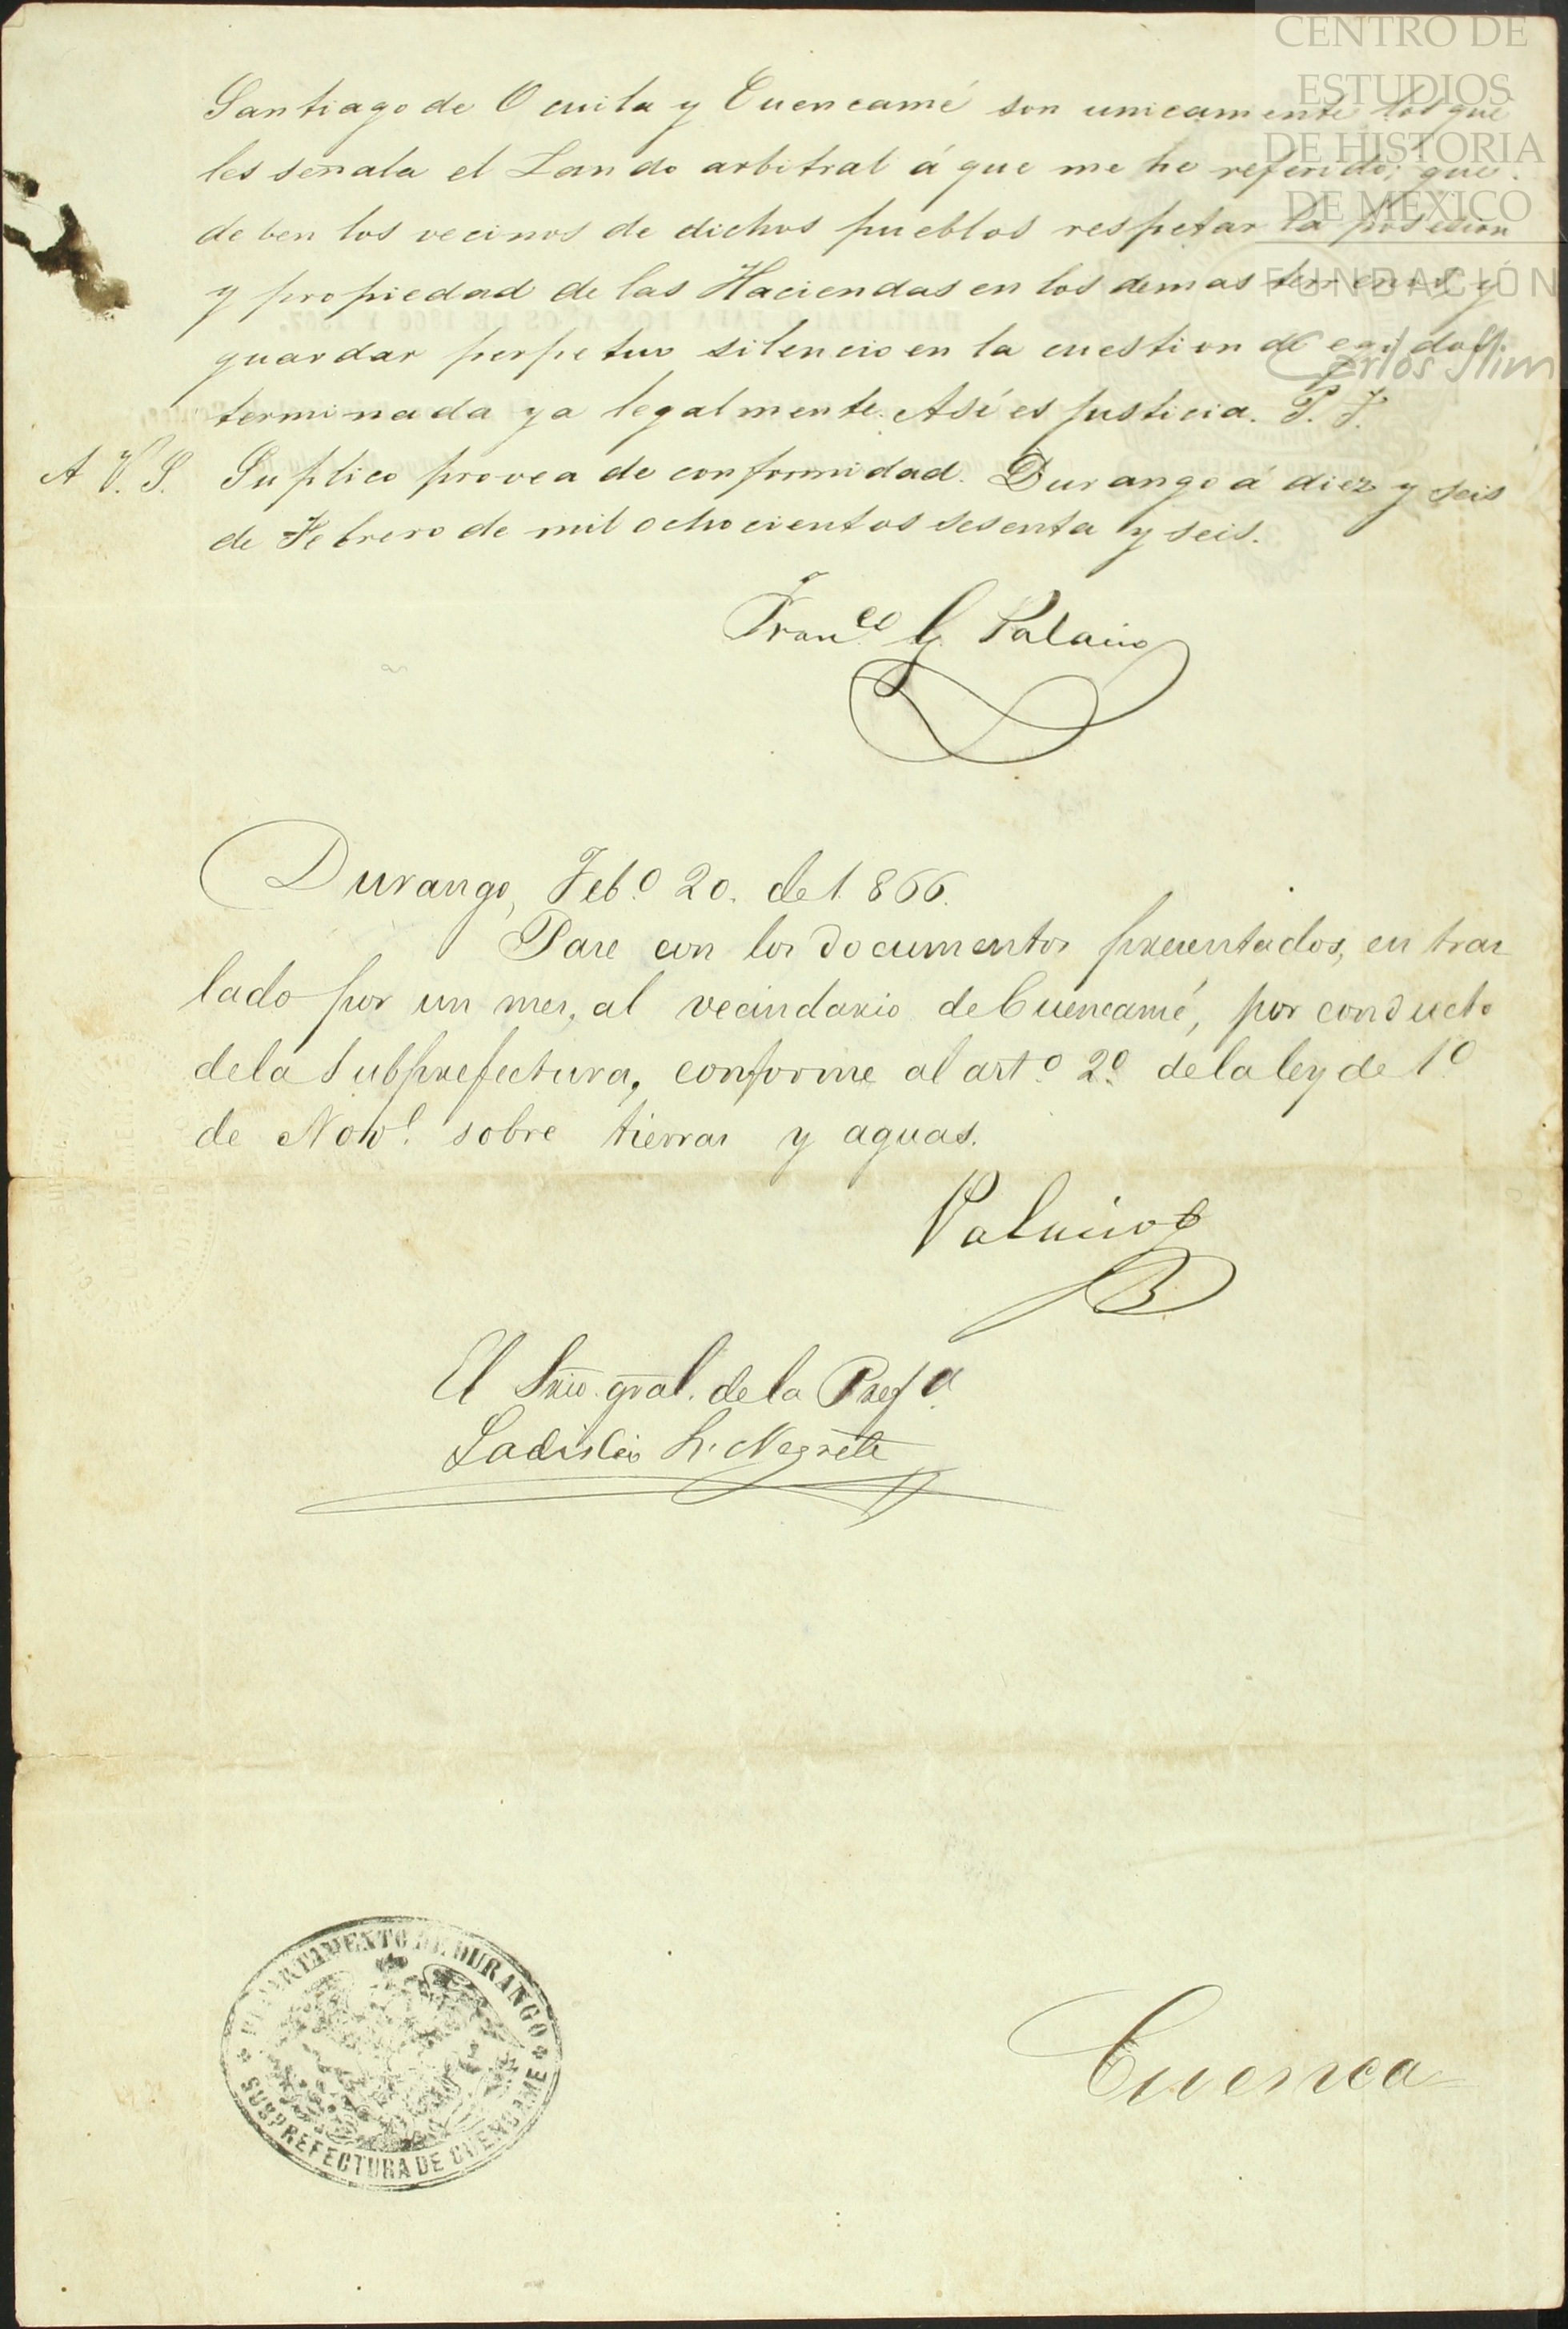 CENTRO DE
ESTUDIOS
DE HISTORIA
DE MÉXICO
FUNDACIÓN
Carlos Slim
Santiago de Ocuila y Cuencamé son unicamente los que
les señala el Laudo arbitral á que me he referido; que
deben los vecinos de dichos pueblos respetar la posesion
y propiedad de las Haciendas en los demas terrenos y
guardar perpetuo silencio en la cuestion de egidos
terminada ya legalmente. Así es justicia. P. J.
A V. S. Suplico provea de conformidad. Durango á diez y seis
de Febrero de mil ochocientos sesenta y seis.
Franco. G. Palacio
Durango, Febo. 20. de 1866.
Pase con los documentos presentados, en tras
lado por un mes, al vecindario de Cuencamé, por conducto
de la Subprefectura, conforme al arto. 2o. de la ley de 1o
de Nove. sobre tierras y aguas.
Palacios
El Srio. gral. de la Prefa.
Ladislao L. Negrete
DEPARTAMENTO DE DURANGO
SUBPREFECTURA DE CUENCAME
Cuenca